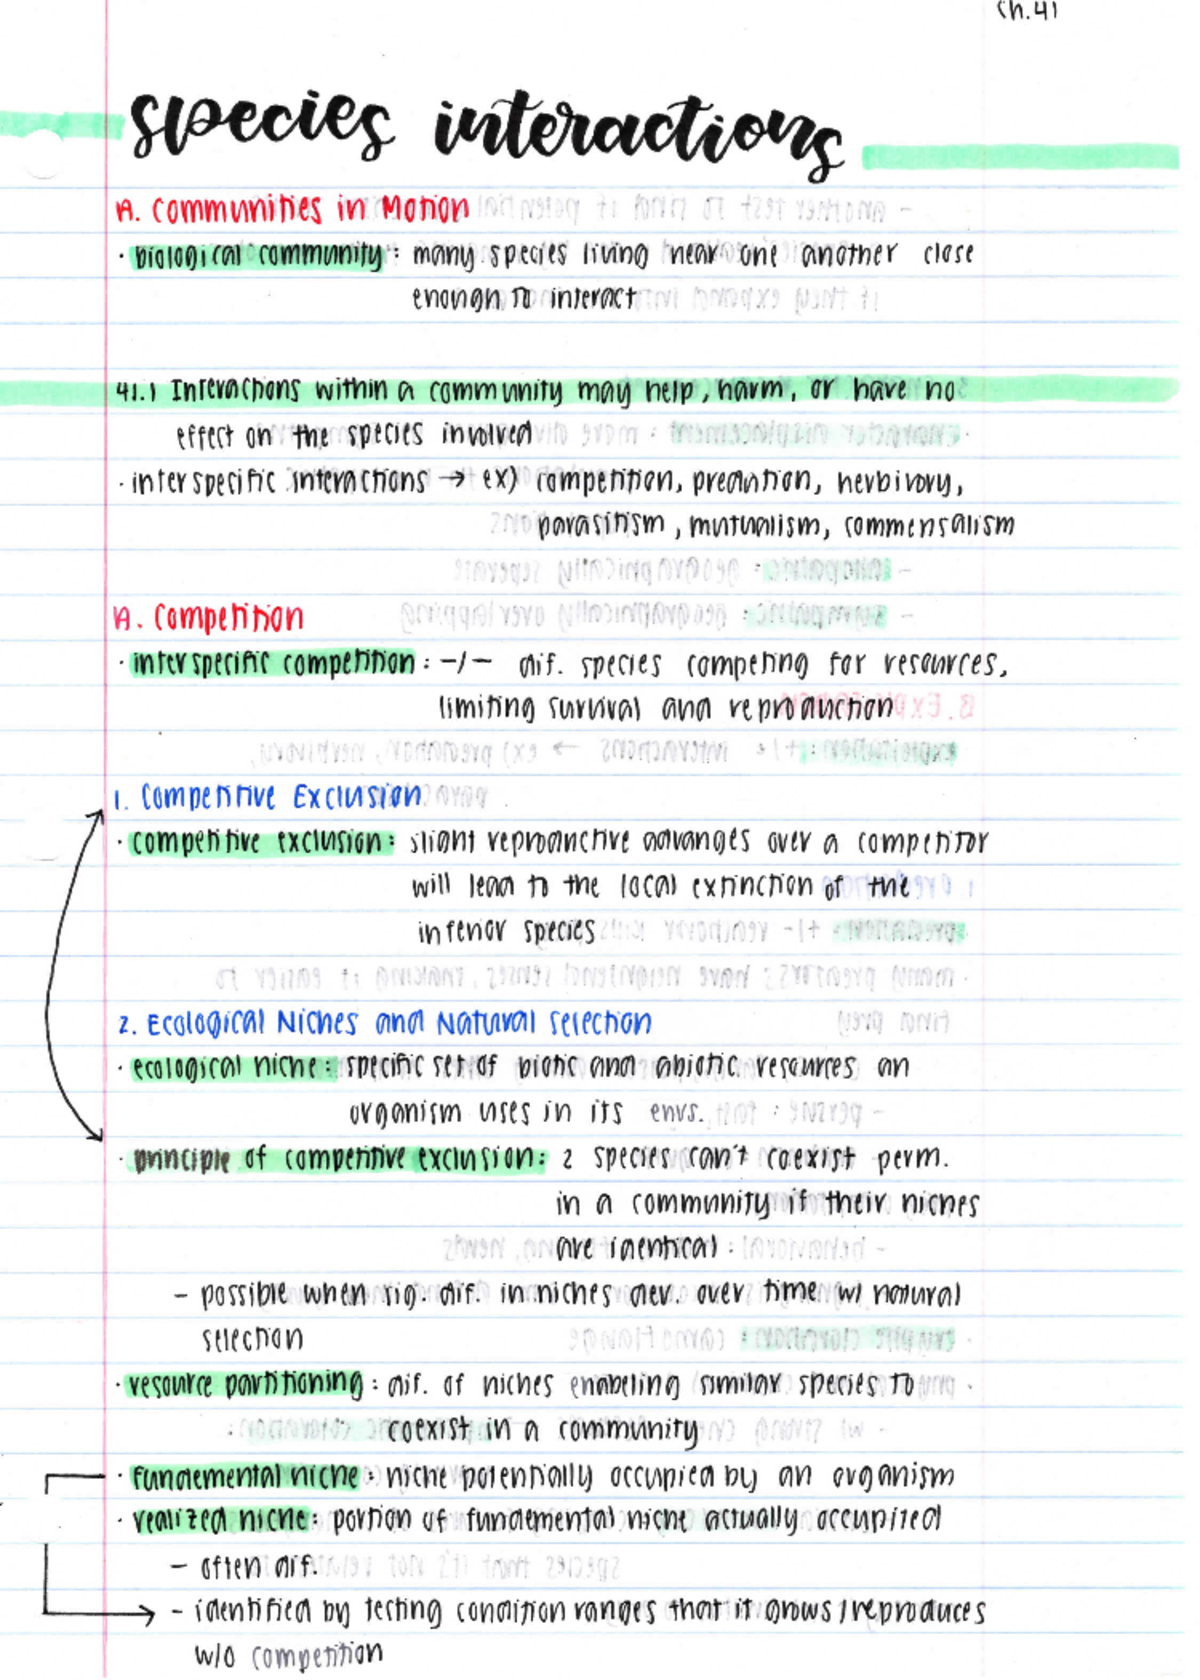 Ch.41
species interactions
A. Communities in Motion
· biological community: many species living near one another close
enough to interact
41.1 Interactions within a community may help, harm, or have no
effect on the species involved
· interspecific interactions → ex) competition, predation, herbivory,
parasitism, mutualism, commensalism
A. Competition
· interspecific competition: -/- dif. species competing for resources,
limiting survival and reproduction
1. Competitive Exclusion
· competitive exclusion: slight reproductive advanges over a competitor
will lead to the local extinction of the
inferior species
2. Ecological Niches and Natural Selection
· ecological niche: specific set of biotic and abiotic resources an
organism uses in its envs.
· principle of competitive exclusion: 2 species can't coexist perm.
in a community if their niches
are identical
- possible when sig. dif. in niches dev. over time w/ natural
selection
· resource partitioning: dif. of niches enabeling similar species to
coexist in a community
· fundemental niche: niche potentially occupied by an organism
· realized niche: portion of fundemental niche actually occupited
- often dif.
- identified by testing condition ranges that it grows/reproduces
w/o competition